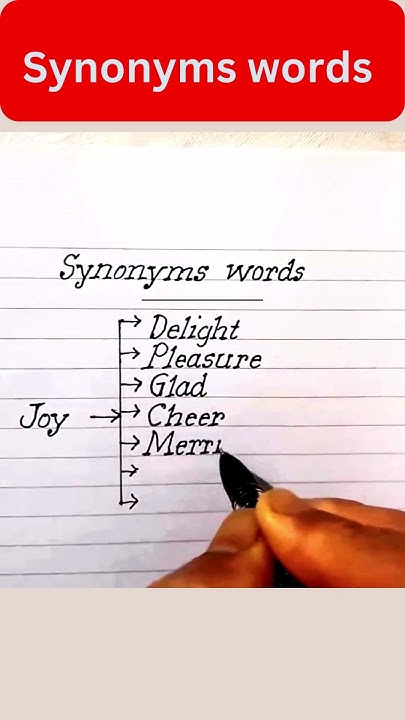 Synonyms words
Synonyms words
Delight
Pleasure
Glad
Joy → Cheer
Merri